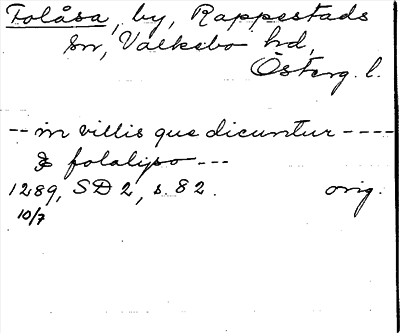 Folåsa, by, Rappestads
sn, Valkebo hd,
Österg. l.
-- in villis que dicuntur ----
folalyso ---
1289, SD 2, s. 82. orig.
10/7